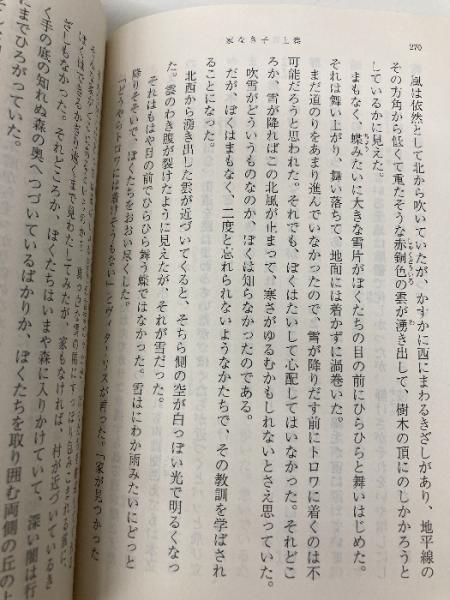 270
家なき子 上巻
風は依然として北から吹いていたが、かすかに西にまわるきざしがあり、地平線の
その方角から低くて重たそうな赤銅色の雲が湧き出して、樹木の頂にのしかかろうと
しているかに見えた。
まもなく、蝶みたいに大きな雪片がぼくたちの目の前にひらひらと舞いはじめた。
それは舞い上がり、舞い落ちて、地面には着かずに渦巻いた。
まだ道のりをあまり進んでいなかったので、雪が降りだす前にトロワに着くのは不
可能だろうと思われた。それでも、ぼくはたいして心配してはいなかった。それどこ
ろか、雪が降ればこの北風が止まって、寒さがゆるむかもしれないとさえ思っていた。
吹雪がどういうものなのか、ぼくは知らなかったのである。
だが、ぼくはまもなく、二度と忘れられないようなかたちで、その教訓を学ばされ
ることになった。
北西から湧き出した雲が近づいてくると、そちら側の空が白っぽい光で明るくなっ
た。雲のわき腹が裂けたように見えたが、それが雪だった。
それはもはや目の前でひらひら舞う蝶ではなかった。雪はにわか雨みたいにどっと
降りそそいで、ぼくたちをおおい尽くした。
「どうやらトロワには着けそうもない」とヴィターリスが言った。「家が見つかった
ぼくはできるかぎり遠くまで見わたしてみたが、家もなければ、村が近づいている
ざしもなかった。それどころか、ぼくたちはいまや森に入りかけていて、深い闇は行
く手の底の知れぬ森の奥へつづいているばかりか、ぼくたちを取り囲む両側の丘の上
にまでひろがっていた。